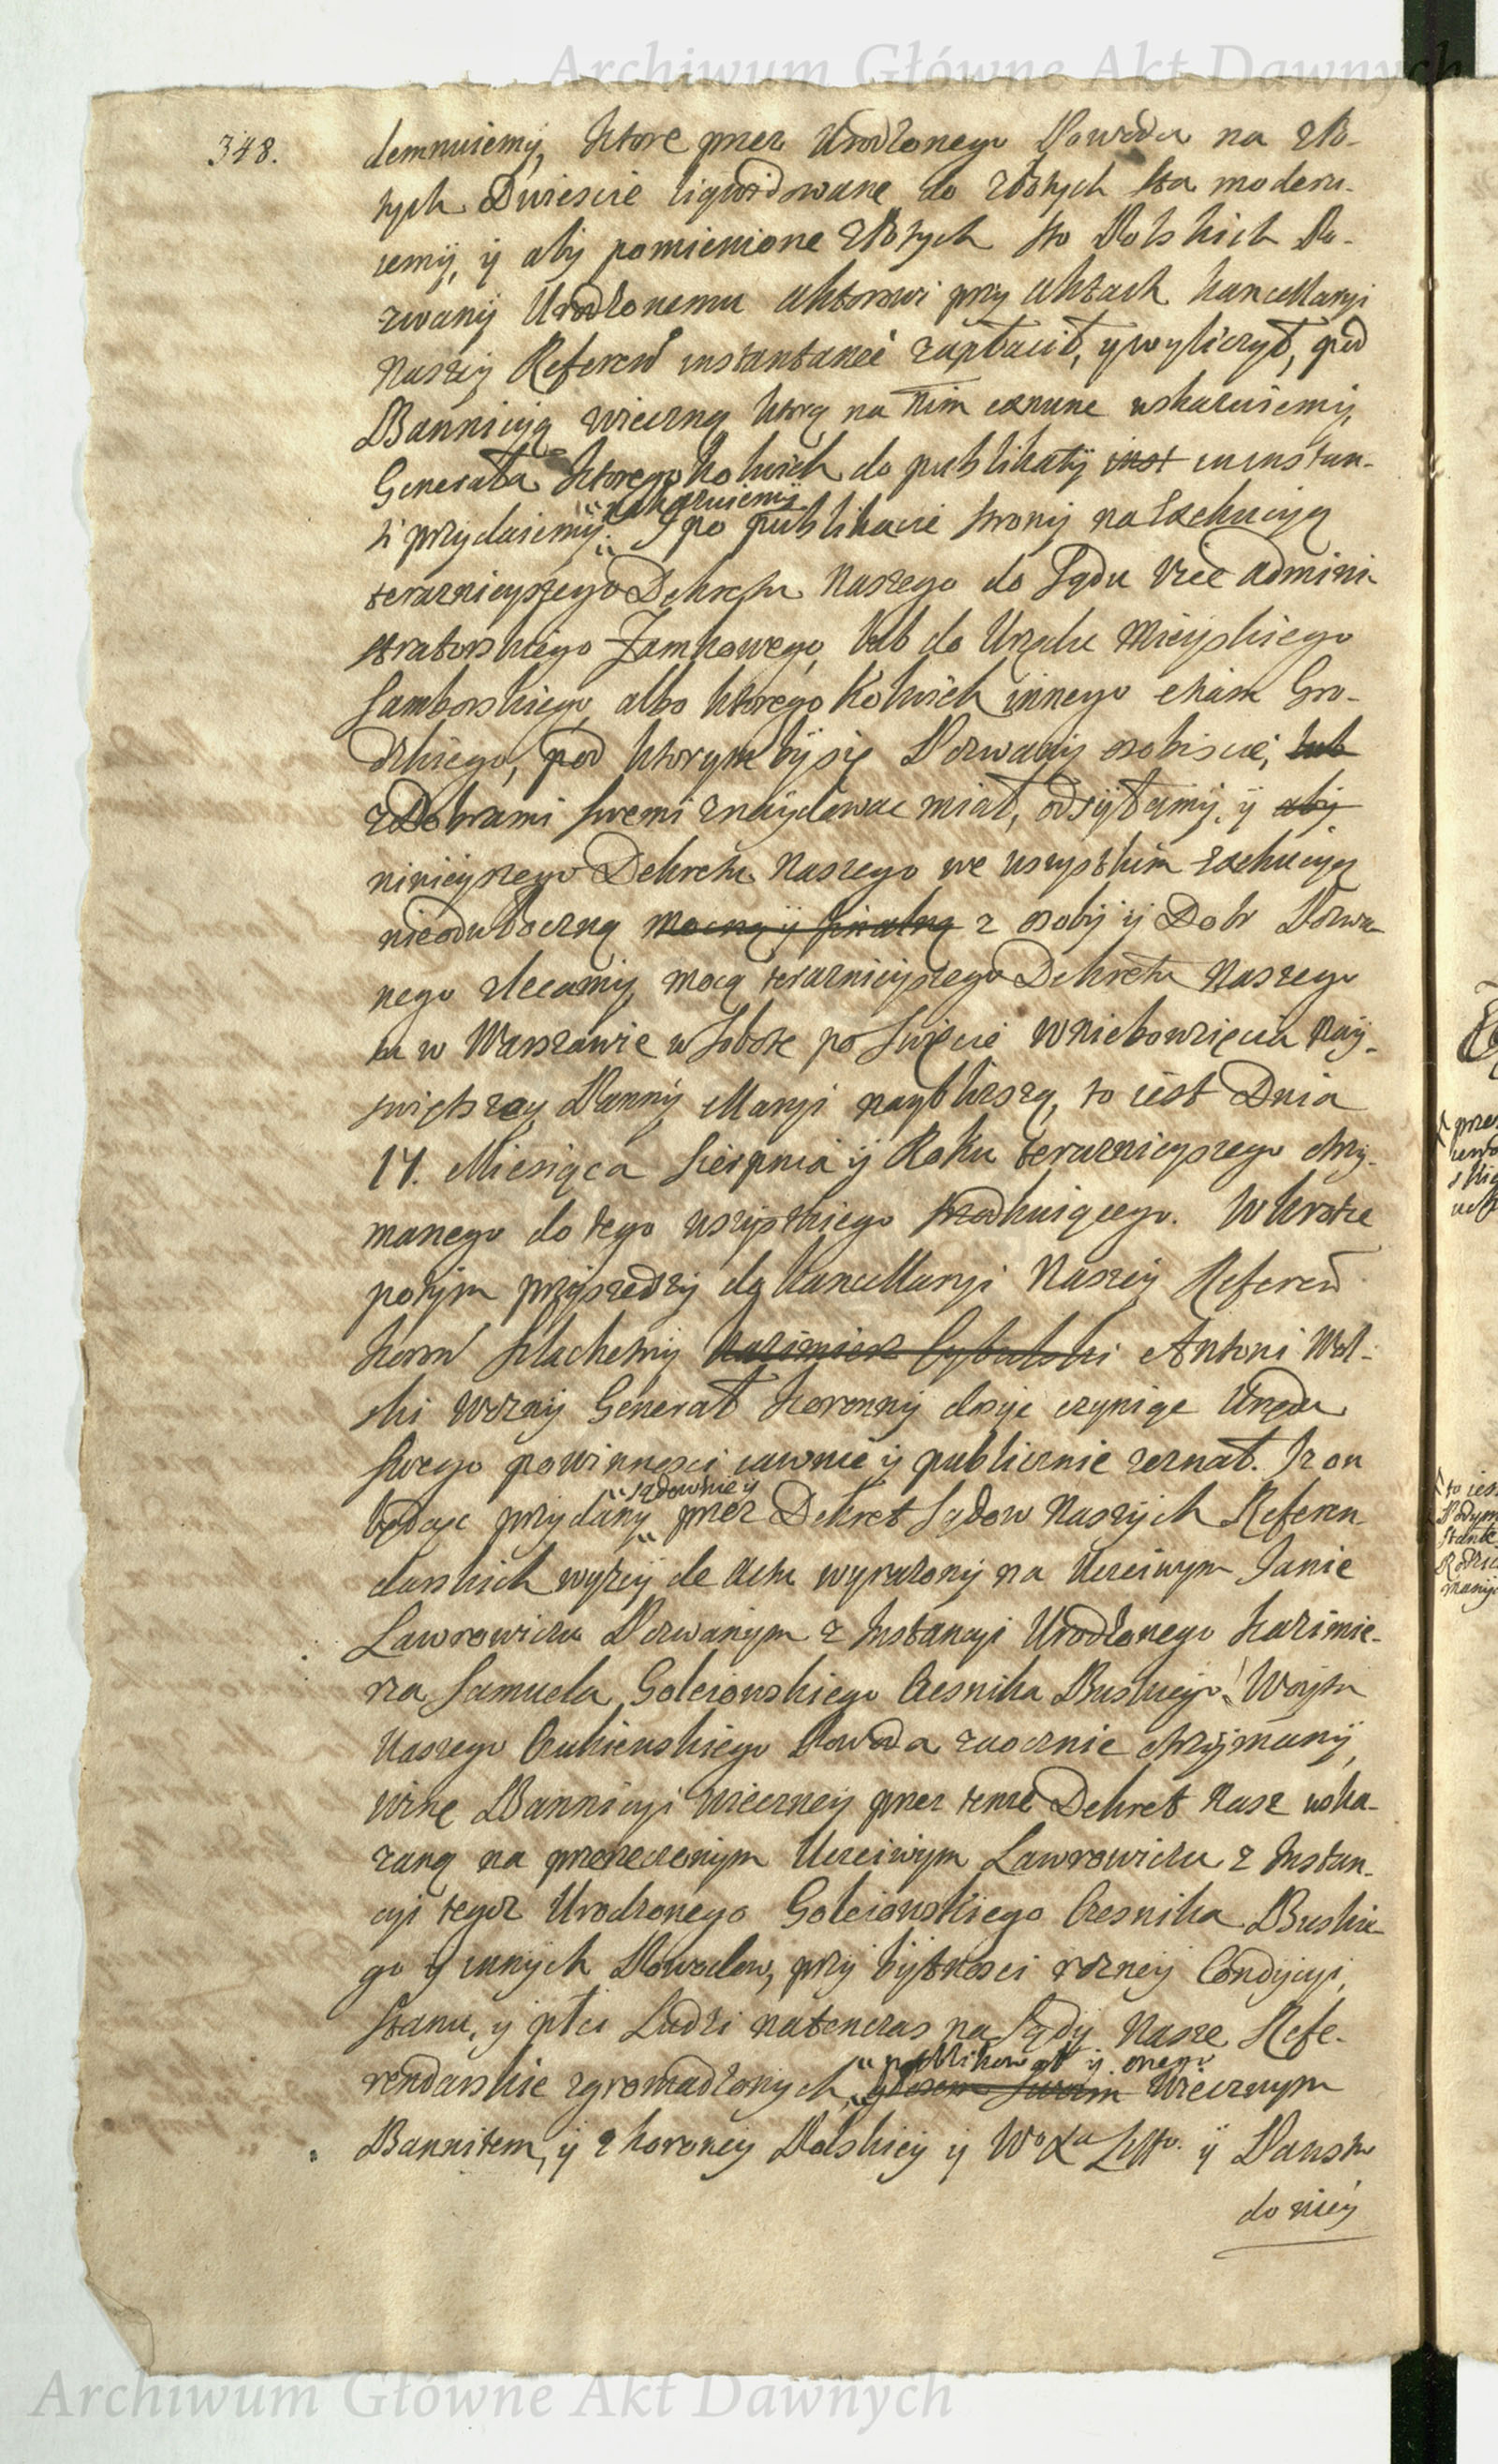 Archiwum Główne Akt Dawnych
348.
demnuiemy, ktore przez Urodzonego Powoda na zło-
tych Dwiescie liqwidowane do złotych sta moderu-
iemy, y aby pomienione złotych sto Polskich Po-
zwany Urodzonemu Aktorowi przy Aktach Kancellaryi
Naszey Referen instantanee zapłacił, y wyliczył, pod
Bannicyą wieczną ktorą na Nim exnunc wskazuiemy,
Generała ktoregokolwiek do publikaty inst iuinstan-
ti przydaiemy. nakazuiemy I po publikacie strony na Exekucyą
teraznieyszego Dekretu Naszego do Sądu Vice Admini-
stratorskiego Zamkowego, lub do Urzędu Mieyskiego
Samborskiego, albo ktorego kolwiek innego etiam Gro-
dzkiego, pod ktorym by się Pozwany osobiscie, lub
z Dobrami swemi znaydować miał, odsyłamy, y aby
ninieyszego Dekretu Naszego we wszystkim Exekucyą
nieodwłoczną mocną y finalną z osoby y Dobr Pozwa-
nego zlecamy, mocą teraznieyszego Dekretu Naszego
tu w Warszawie w Sobotę po Swięcie Wniebowzięcia Nay-
swiętszey Panny Maryi naybliższą, to iest Dnia
17. Miesiąca Sierpnia y Roku teraznieyszego otrzy-
manego do tego wszystkiego srodkuiącego. Wkrotce
potym przyszedszy do Kancellaryi Naszey Referen
Koron Szlachetny Kazimierz Cybulski Antoni Wol-
ski Wozny Generał Koronny dosyc czyniąc Urzędu
swego powinnosci iawnie y publicznie zeznał. Iz on
będąc przydany sądownie y przez Dekret Sądow Naszych Referen-
darskich wyżey de Actu wyrażony na Uczciwym Janie
Lawrowiczu Pozwanym z Instancyi Urodzonego Kazimie-
rza Samuela Goleiowskiego Czesnika Buskiego, Woyta
Naszego Czukiewskiego Powoda zaocznie otrzymany,
winę Bannicyi wieczney przez tenże Dekret Nasz wska-
zaną na przerzeczonym Uczciwym Lawrowiczu z Instan-
cyi tegoż Urodzonego Goleiowskiego Czesnika Buskie-
go y innych Powodow, przy bytnosci rozney Condycyi,
stanu, y płci Ludzi natenczas na Sądy Nasze Refe-
rendarskie zgromadzonych, publikował y onego głosem swoim Wiecznym
Bannitem, y z Korony Polskiey y Wo Xa Litto. y Panstw
do niey
Archiwum Główne Akt Dawnych